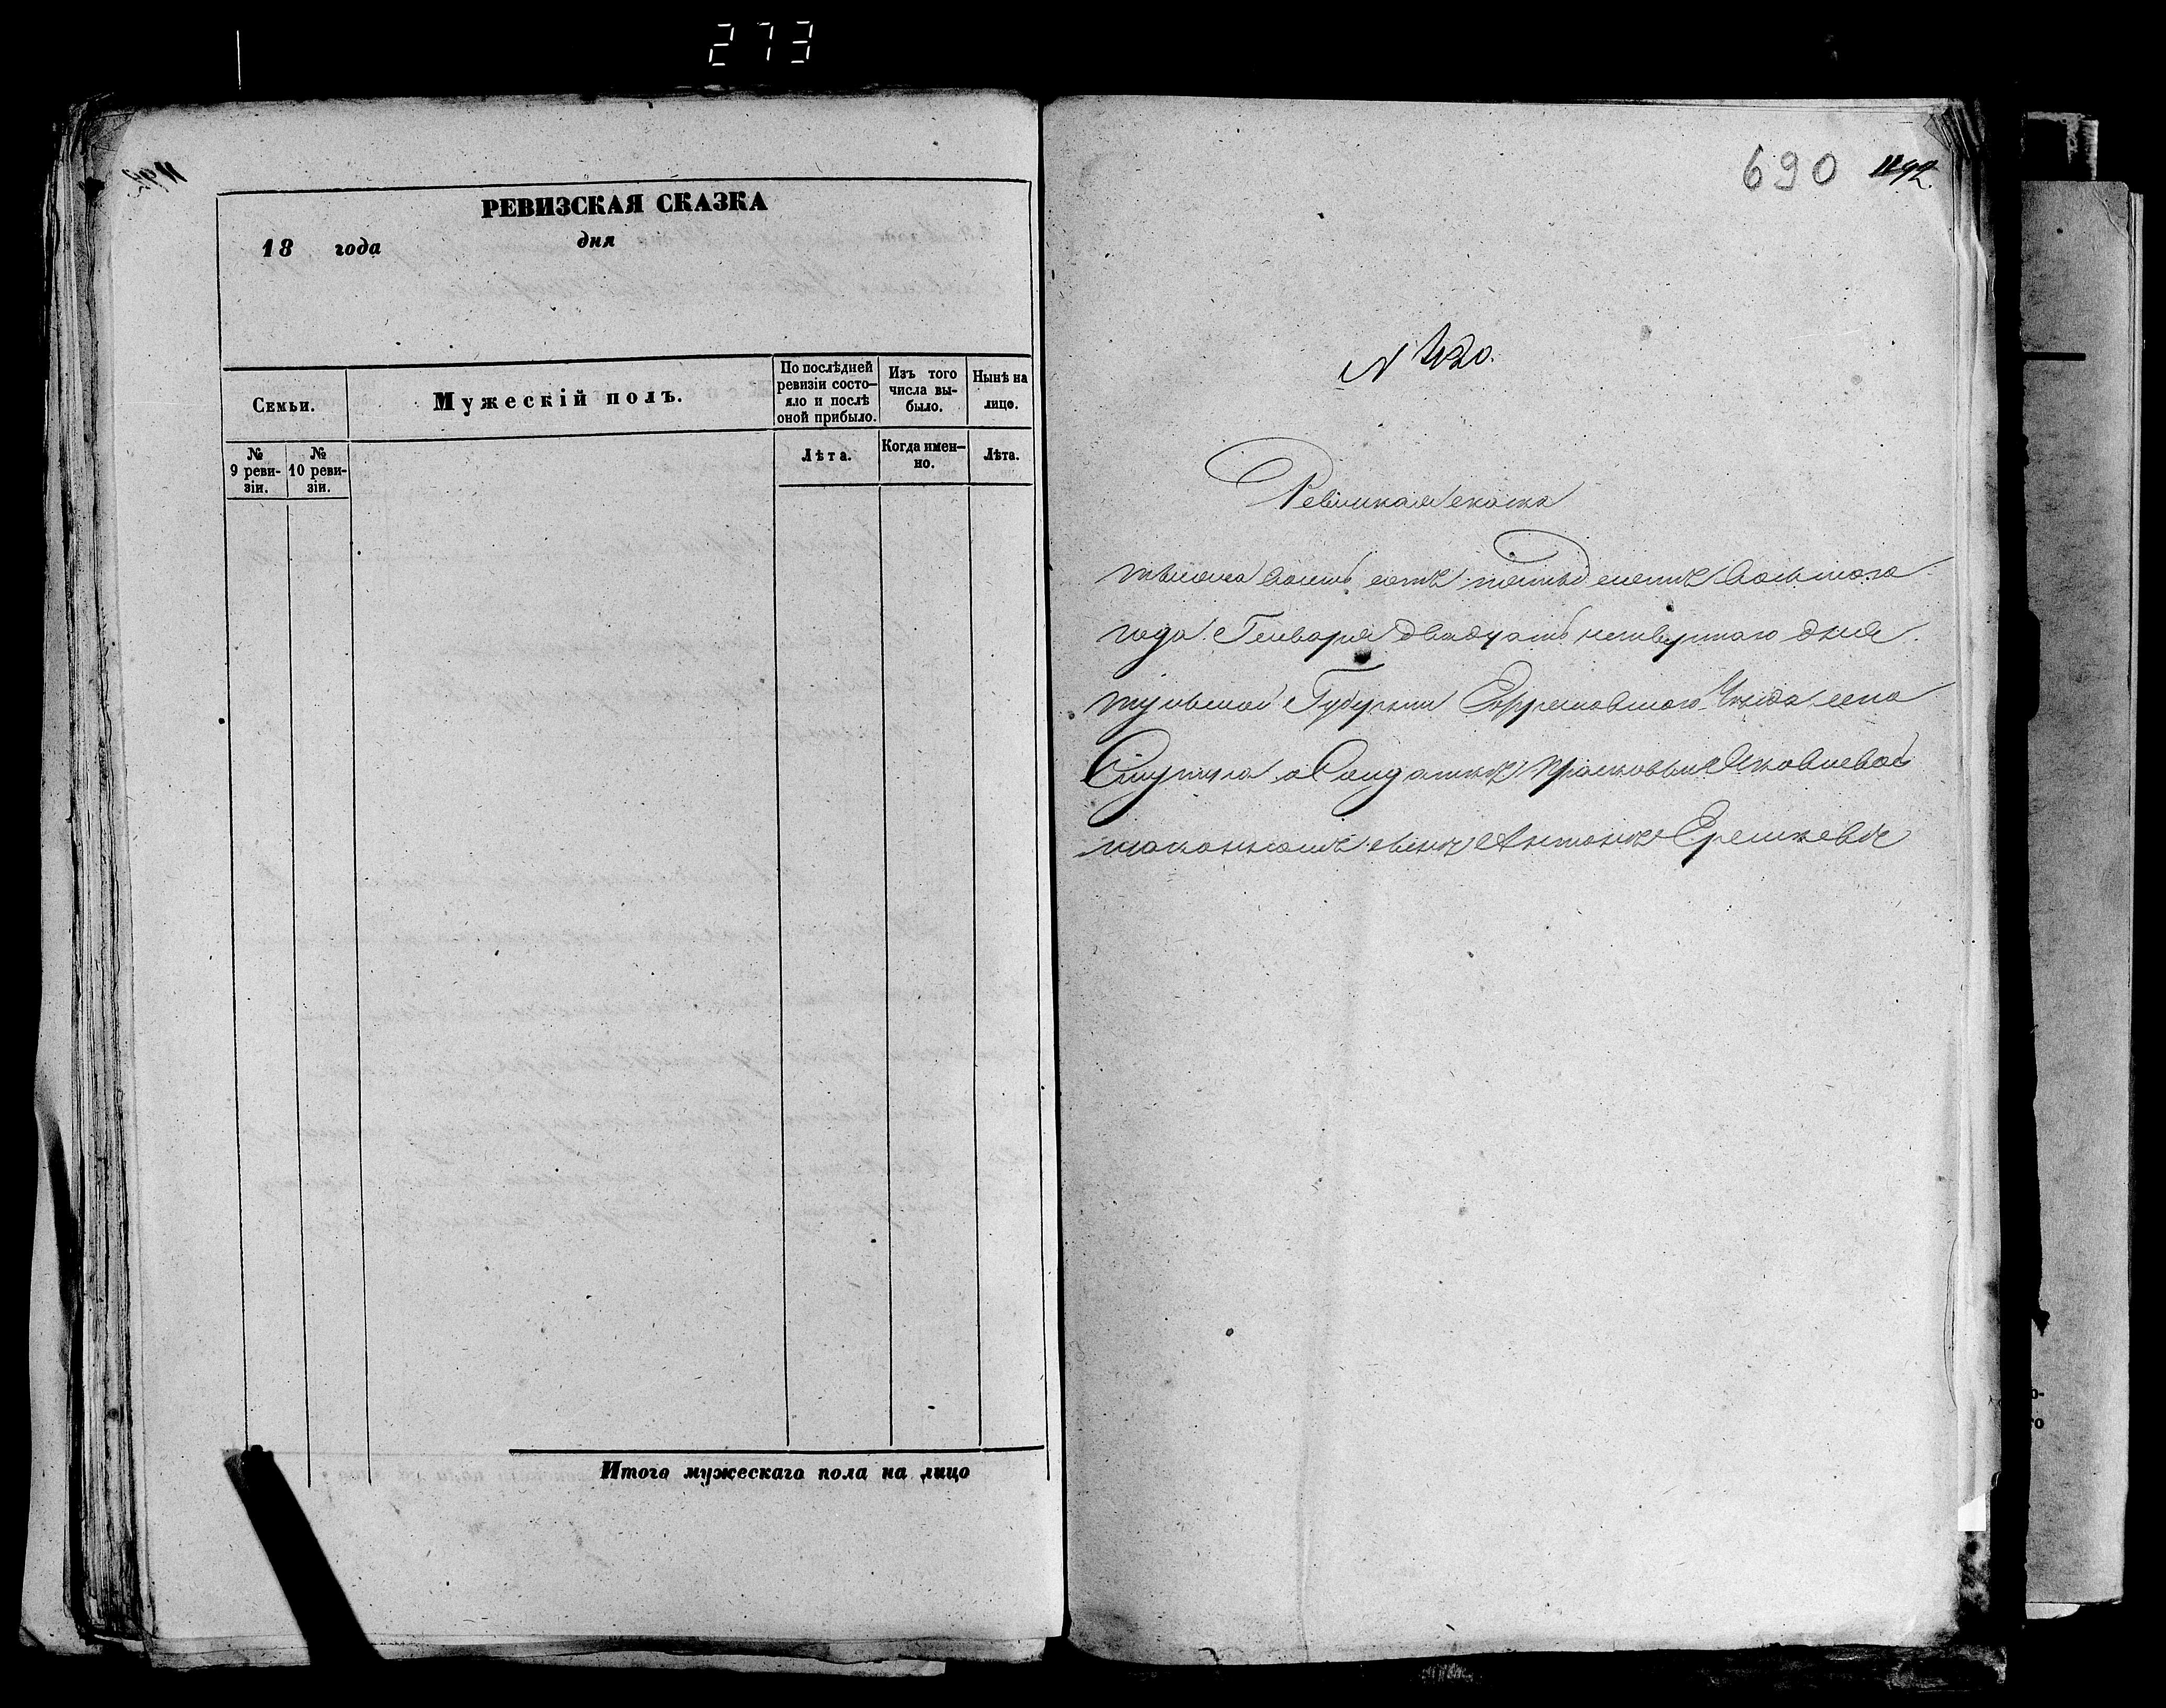 273
РЕВИЗСКАЯ СКАЗКА
18 года дня
Семьи.
Мужескій полъ.
По послѣдней ревизіи состо-
яло и послѣ оной прибыло.
Изъ того числа вы-
было.
Нынѣ на лицо.
№ 9 реви-
зіи.
№ 10 реви-
зіи.
Лѣта.
Когда имен-
но.
Лѣта.
Итого мужескаго пола на лицо
690
1192.
N
Ревизкая скаска
тысеча восемь сотъ пятьдесетъ восьмого
года Генваря двадцать четвертаго дня
тульской Губернии Ефремовского Уезда села
о Солдатке Прасковьи Яковлевой
Антоне